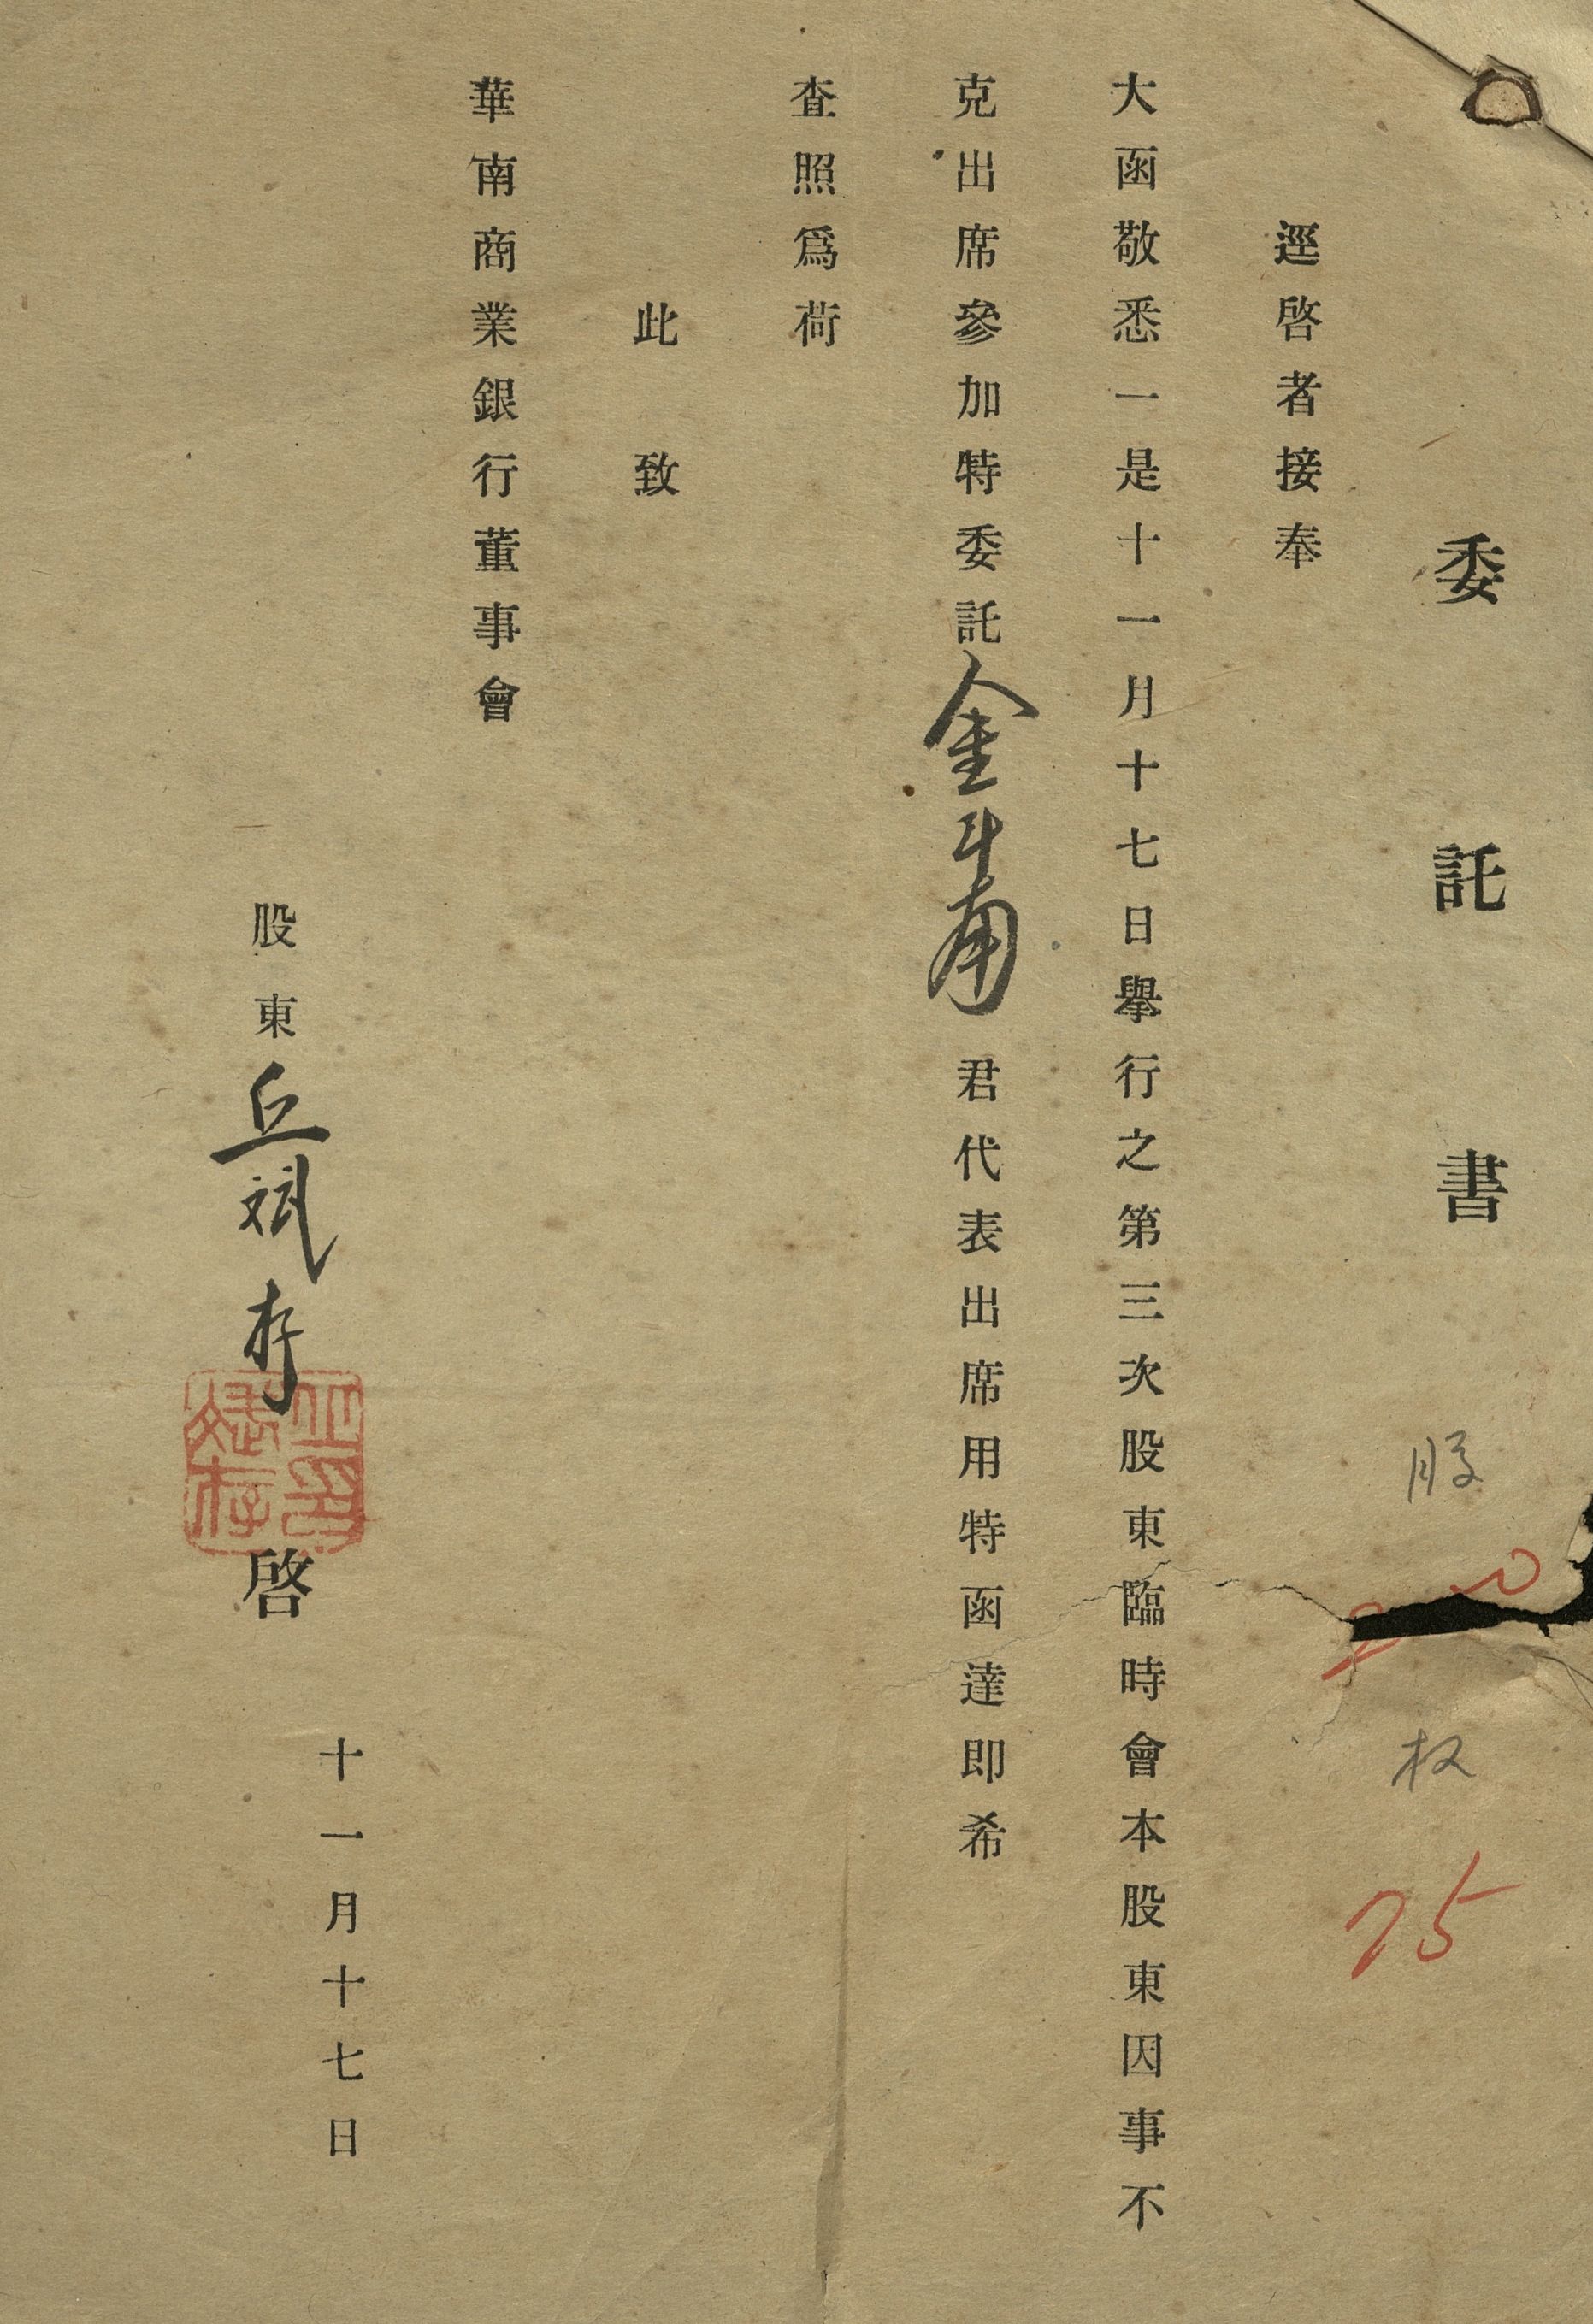 委託書
逕啓者接奉
大函敬悉一是十一月十七日舉行之第三次股東臨時會本股東因事不
克出席參加特委託金斗甫君代表出席用特函達即希
查照爲荷
此致
華南商業銀行董事會
股東丘斌存啓
十一月十七日
股
权
75